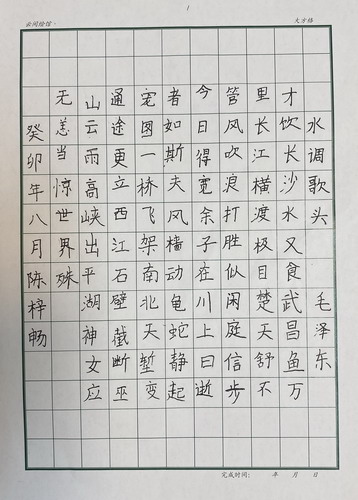 大方格
水调歌头 毛泽东
才饮长沙水又食武昌鱼万
里长江横渡极目楚天舒不
管风吹浪打胜似闲庭信步
今日得宽余子在川上曰逝
者如斯夫风樯动龟蛇静起
宏图一桥飞架南北天堑变
通途更立西江石壁截断巫
山云雨高峡出平湖神女应
无恙当惊世界殊
癸卯年八月陈梓畅
完成时间： 年 月 日